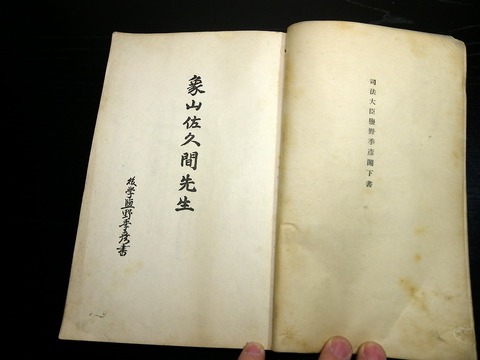 司法大臣鹽野季彦閣下書
象山佐久間先生
後学鹽野季彦書